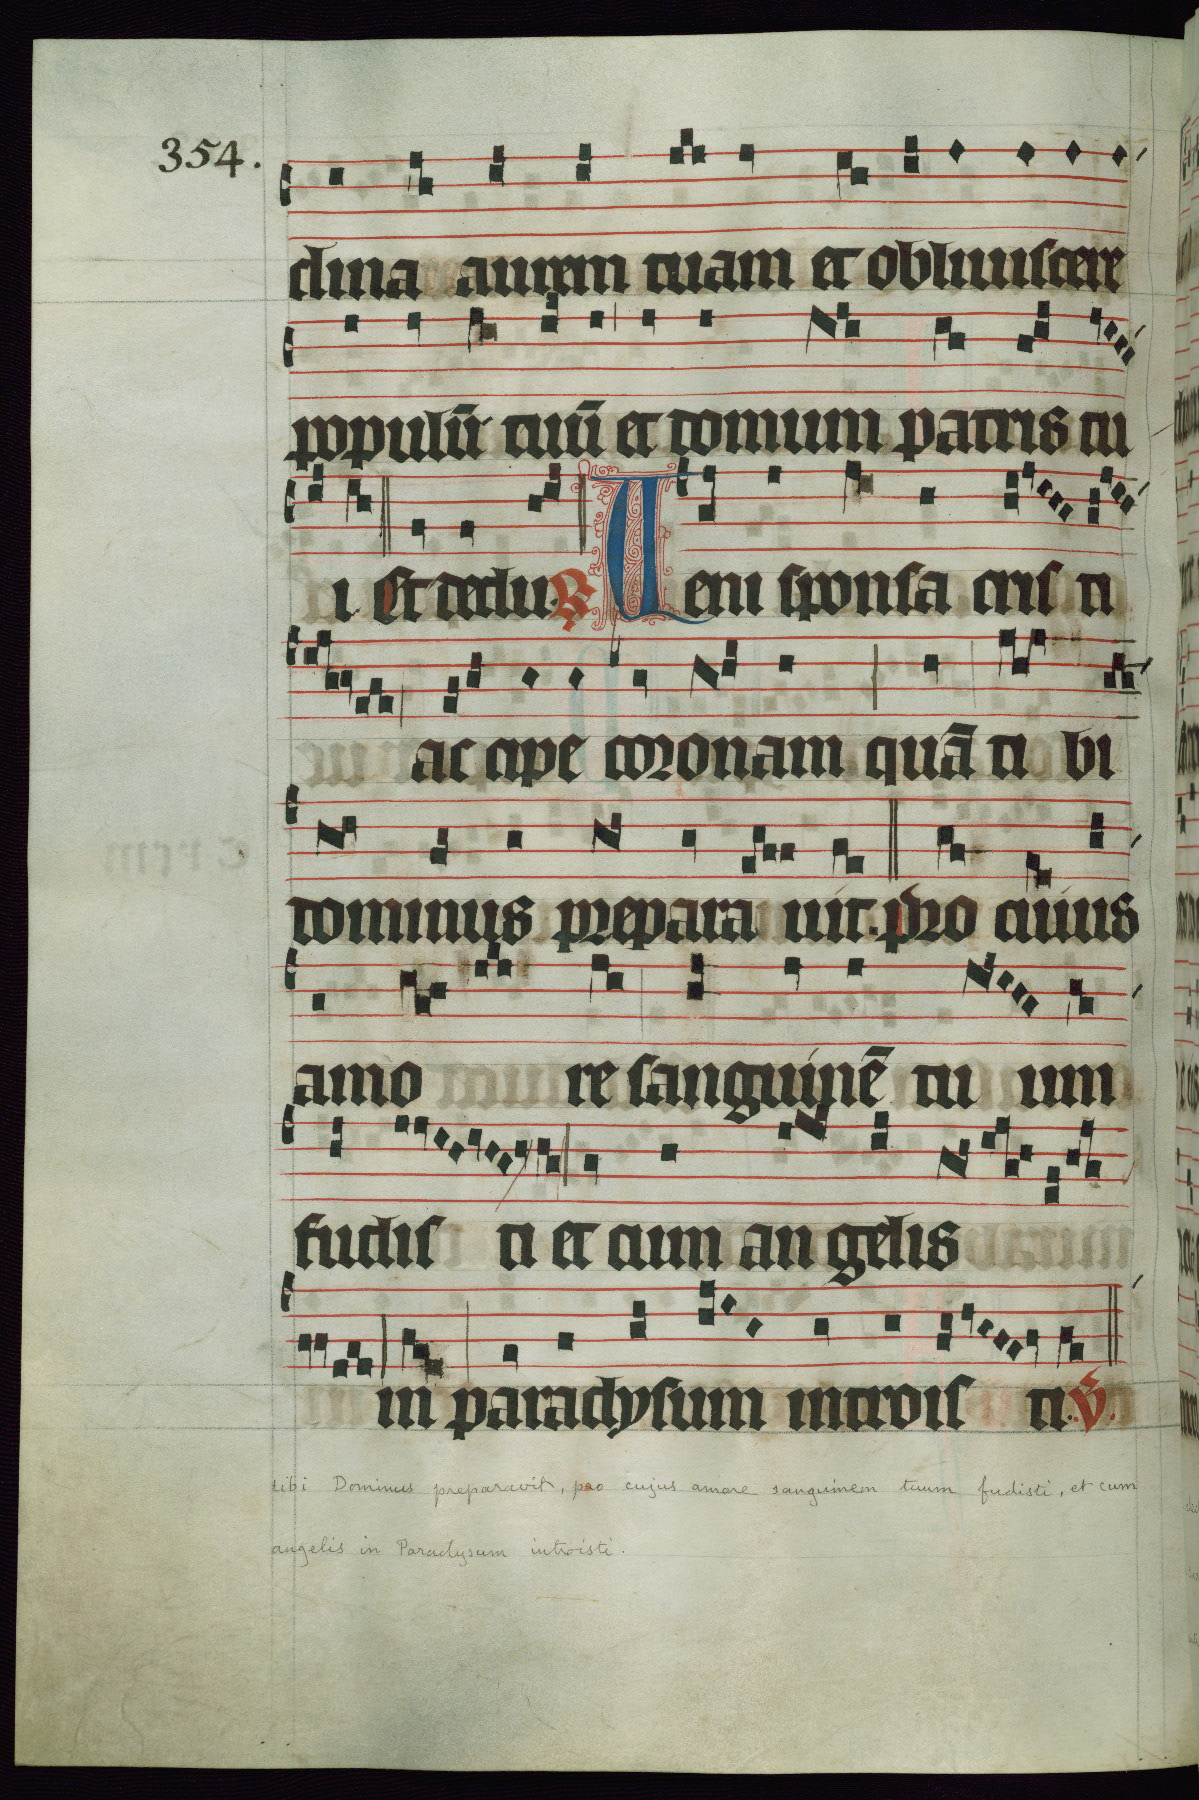 354.
clina aurem tuam et obliuiscere
populū tuū et domum patris tu
i Et dedu. R Ueni sponsa cris ti
ac cipe coronam quā ti bi
dominus prepara uit. pro cuius
amo re sanguinē tu um
fudis ti et cum an gelis
in paradysum introis ti. V.
tibi Dominus preparavit, pro cujus amore sanguinem tuum fudisti, et cum
angelis in Paradysum introisti.